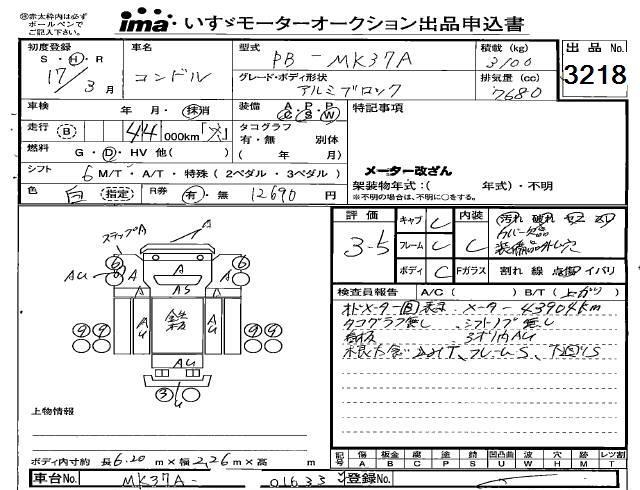 ㊟赤太枠内は必ず
ボールペンで
ご記入下さい。
ima いすゞモーターオークション出品申込書
初度登録 S・H・R 17/3月
車名 コンドル
型式 PB-MK37A
積載(kg) 3100
出品No. 3218
グレード・ボディ形状 アルミブロック
排気量(cc) 7680
車検 年 月・抹消
装備 A・P・P C S W
特記事項
走行 B 44 000km「メ」
タコグラフ 有・無 別体
( 年 月)
燃料 G・D・HV 他( )
メーター改ざん
シフト 6 M/T・A/T・特殊(2ペダル・3ペダル)
架装物年式:( 年式)・不明
※不明の場合は、不明に○をする。
色 白 指定 R券 有・無 12690円
評価 3-5
キャブ C 内装 C 汚れ 破れ
カバー欠品
フレーム C 装備品外し穴
ボディ C Fガラス 割れ 線 点傷 イバリ
ステップA A
6 6
AU A A
A AS A
AU 鉄板 AU
9 9 9 9
AU
3 U
検査員報告 A/C( ) B/T(上がり)
オドメーターB表示 メーター43904km
タコグラフ無し シフトノブ無し
AU
フレームS、下廻りS
上物情報
ボディ内寸約 長6.20m×幅2.26m×高 m
記号 傷A 板金B 腐C 塗P 錆S 凹凸曲U 波W 穴H 跡M レツ割T
車台No. MK37A-01633
登録No.